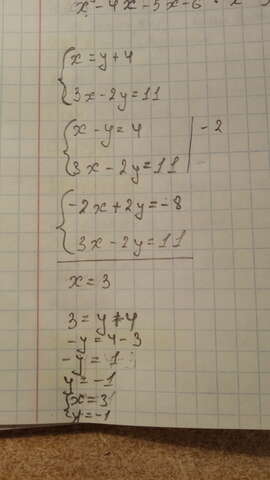 x = y + 4
3x - 2y = 11
x - y = 4 | - 2
3x - 2y = 11
-2x + 2y = -8
3x - 2y = 11
x = 3
3 = y + 4
-y = 4 - 3
-y = 1
y = -1
x = 3
y = -1